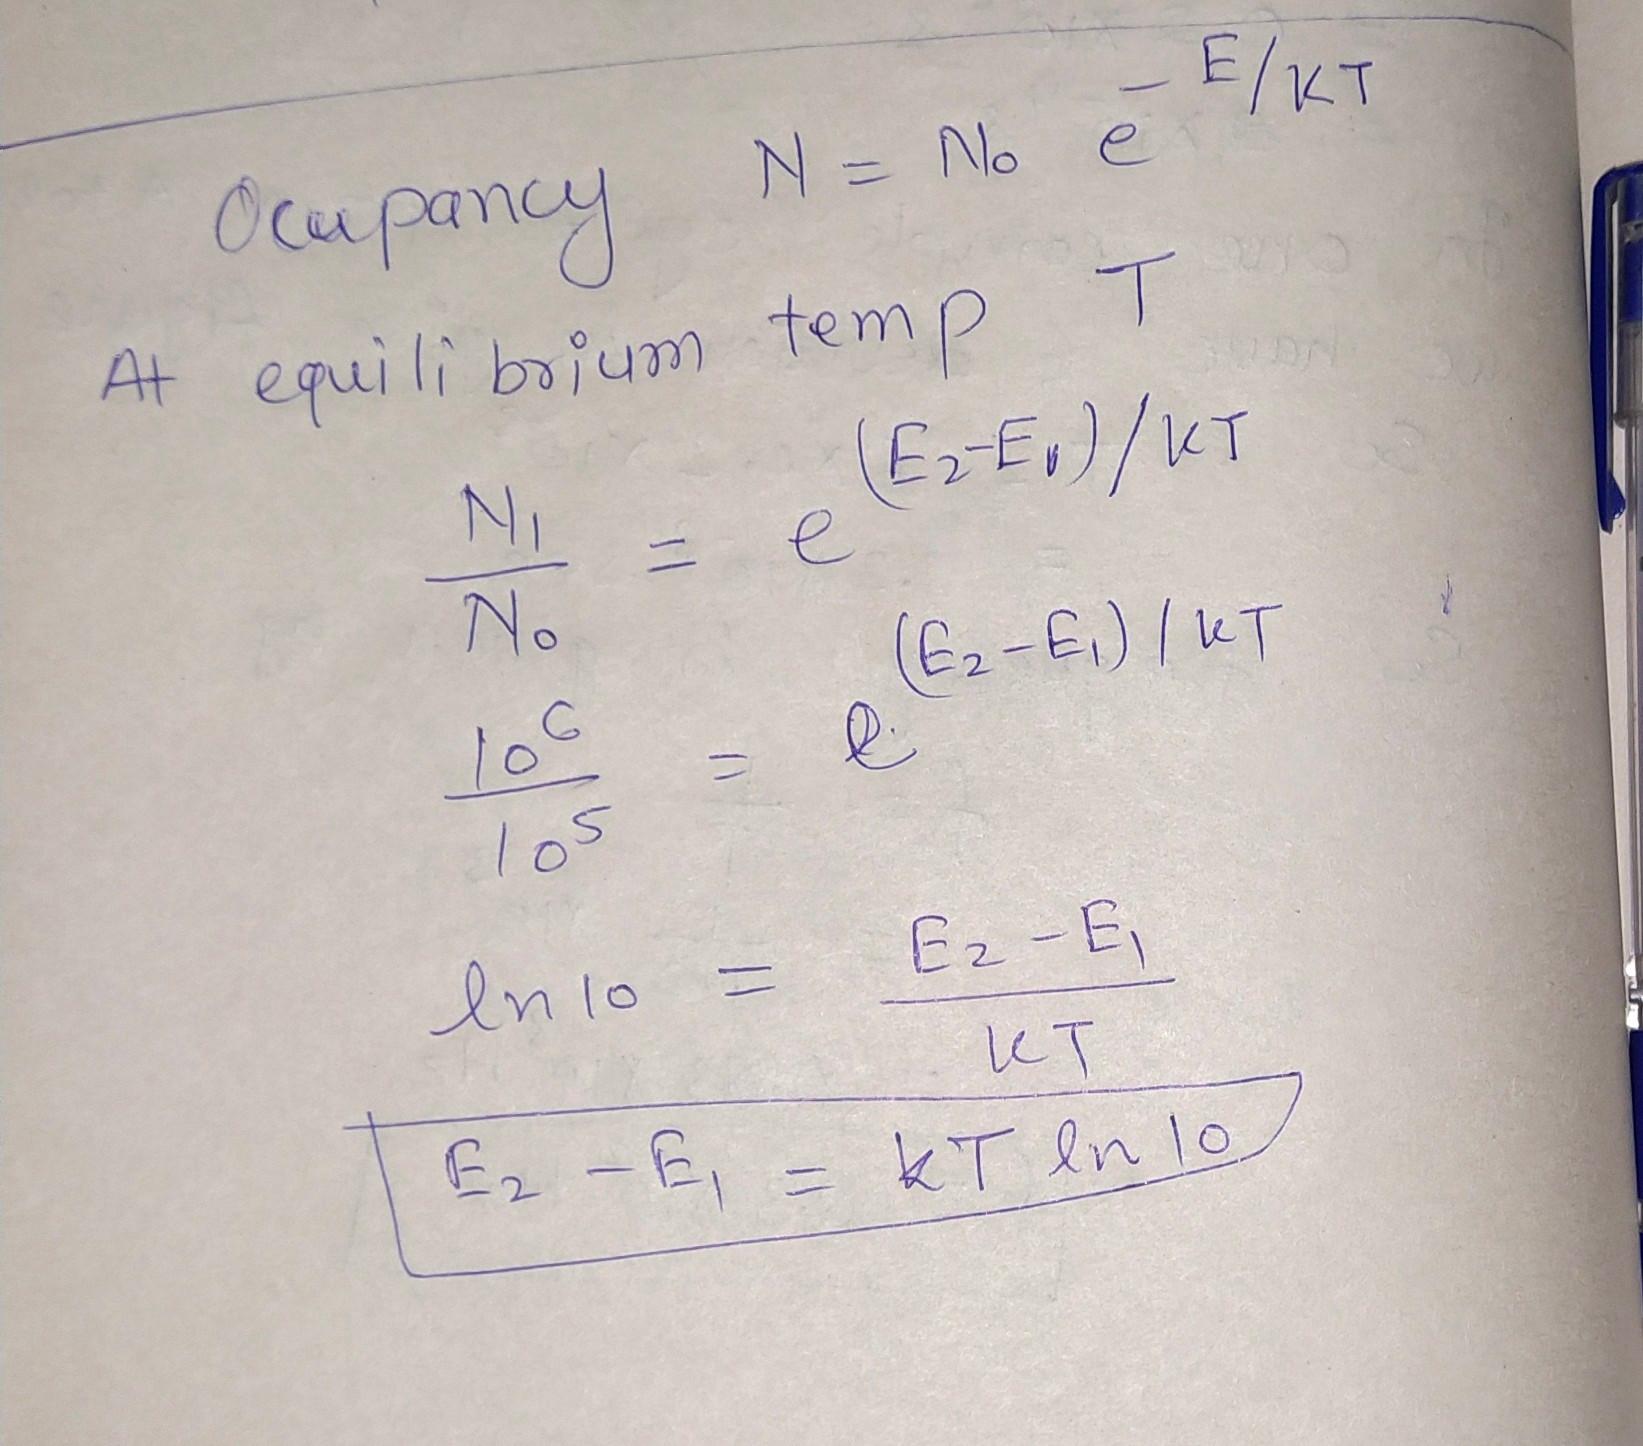 Ocupancy N = N₀ e^(-E/KT)
At equilibrium temp T
N₁/N₀ = e^((E₂-E₁)/KT)
10⁶/10⁵ = e^((E₂-E₁)/KT)
ln 10 = (E₂-E₁)/KT
E₂ - E₁ = kT ln 10